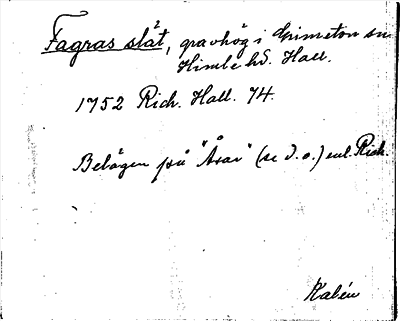 Fagras slåt, gravhög i Grimeton sn
Himle hd. Hall.
1752 Rich. Hall. 74.
Belägen på "Åsar" (se d. o.) enl. Rich.
Kalén